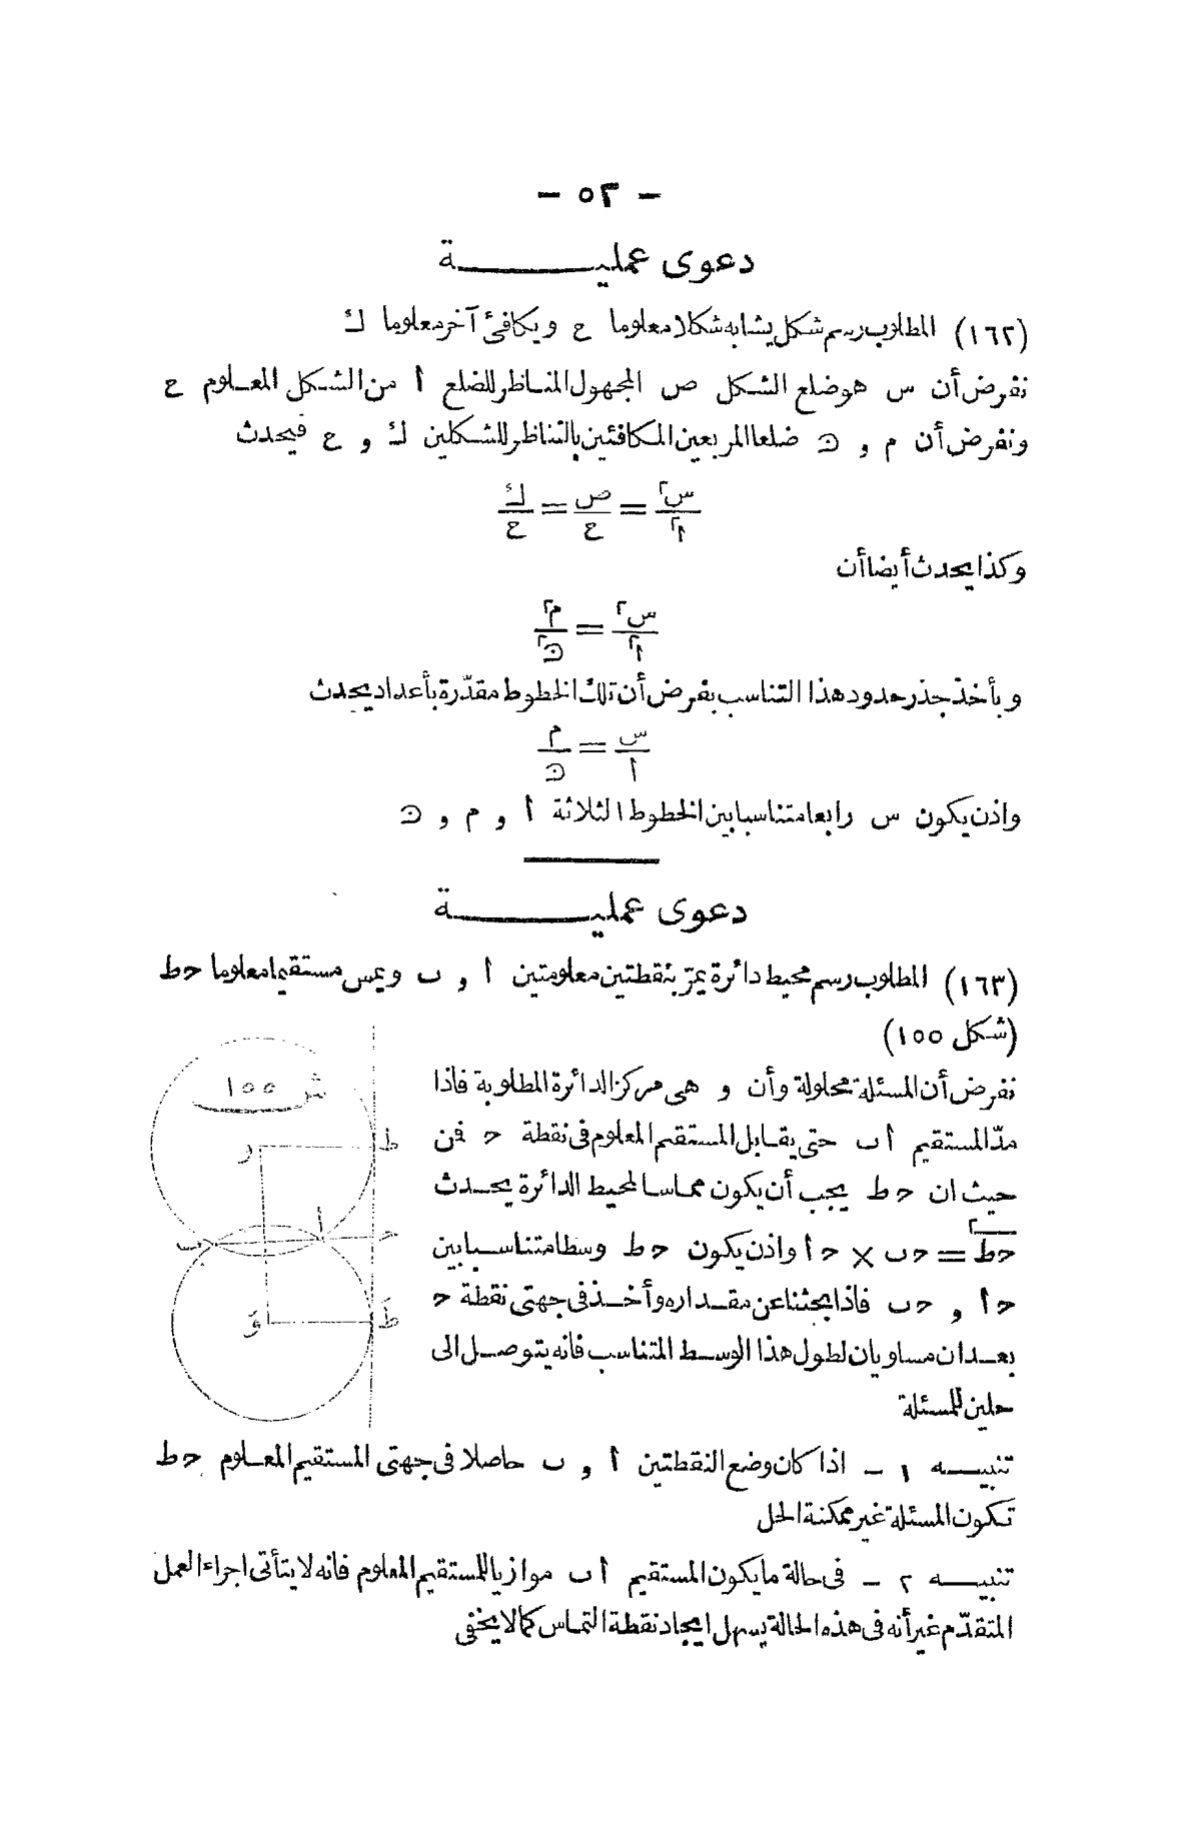 - ٥٣ -
دعوى عمليـــــــة
(١٦٢) المطلوب رسم شكل يشابه شكلا معلوما ع ويكافئ آخر معلوما ك
نفرض أن س هو ضلع الشكل ص المجهول المناظر للضلع أ من الشكل المعلوم ع
ونفرض أن م و ن ضلعا المربعين المكافئين بالتناظر للشكلين ك و ع فيحدث
س٢/أ٢ = ص/ع = ك/ع
وكذا يحدث أيضا أن
س٢/أ٢ = م٢/ن٢
وبأخذ جذر حدود هذا التناسب بفرض أن تلك الخطوط مقدّرة بأعداد يحدث
س/أ = م/ن
واذن يكون س رابعا متناسبا بين الخطوط الثلاثة أ و م و ن
دعوى عمليـــــــة
(١٦٣) المطلوب رسم محيط دائرة يمرّ بنقطتين معلومتين أ و ب ويمس مستقيما معلوما حط
(شكل ١٥٥)
نفرض أن المسئلة محلولة وأن و هى مركز الدائرة المطلوبة فاذا
مدّ المستقيم أب حتى يقابل المستقيم المعلوم فى نقطة ح فمن
حيث ان حط يجب أن يكون مماسا لمحيط الدائرة يحدث
حط٢ = حب × حأ واذن يكون حط وسطا متناسبا بين
حأ و حب فاذا بحثنا عن مقداره وأخذ فى جهتى نقطة ح
بعدان مساويان لطول هذا الوسط المتناسب فانه يتوصل الى
حلين للمسئلة
ش ١٥٥
و ط
أ
ب ح
وَ طَ
تنبيـه ١ - اذا كان وضع النقطتين أ و ب حاصلا فى جهتى المستقيم المعلوم حط
تكون المسئلة غير ممكنة الحل
تنبيـه ٢ - فى حالة ما يكون المستقيم أب موازيا للمستقيم المعلوم فانه لا يتأتى اجراء العمل
المتقدّم غير أنه فى هذه الحالة يسهل ايجاد نقطة التماس كما لا يخفى